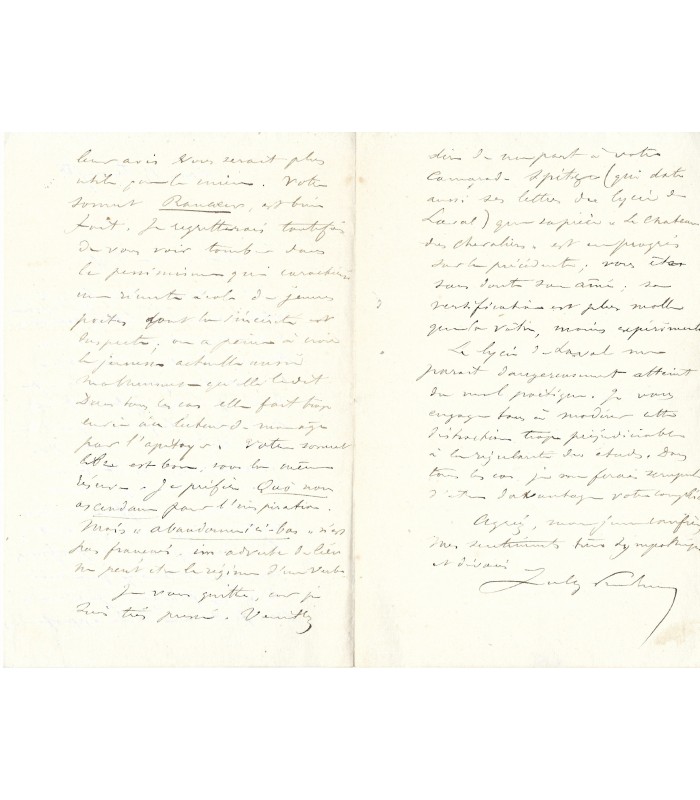 leur avis vous serait plus
utile que le mien. Votre
sonnet Rancœur, est bien
fait. Je regretterais toutefois
de vous voir tomber dans
le pessimisme qui caractérise
une récente école de jeunes
poètes dont la sincérité est
suspecte; on a peine à croire
la jeunesse actuelle aussi
malheureuse qu'elle le dit.
Dans tous les cas elle fait trop
envie à ses lecteurs de mon âge
pour l'apitoyer. Votre sonnet
est bon, sous la même
réserve. Je préfère Quò non
ascendam pour l'inspiration.
Mais "abandonnés ici-bas" n'est
pas français. un adverbe de lieu
ne peut être le régime d'un verbe.
Je vous quitte, car je
suis très pressé. Veuillez
dire de ma part à votre
camarade Spitz (qui date
aussi ses lettres du lycée de
Laval) que sa pièce "Le château
des chevaliers" est en progrès
sur la précédente; vous êtes
sans doute son ami; sa
versification est plus molle
que la vôtre, moins expérimentée
Le lycée de Laval me
paraît dangereusement atteint
du mal poétique. Je vous
engage tous à modérer cette
distraction trop préjudiciable
à la régularité des études. Dans
tous les cas je me ferais scrupule
d'être davantage votre complice
Agréez, mon jeune confrère,
mes sentiments très sympathiques
et dévoués